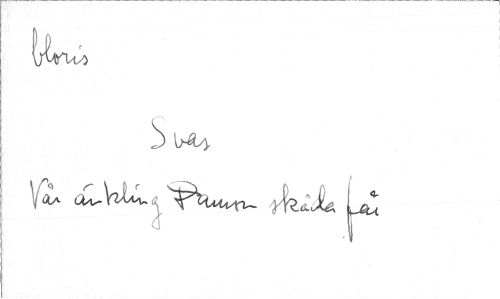 Cloris
Svar
Vår änkling Damon skåda får